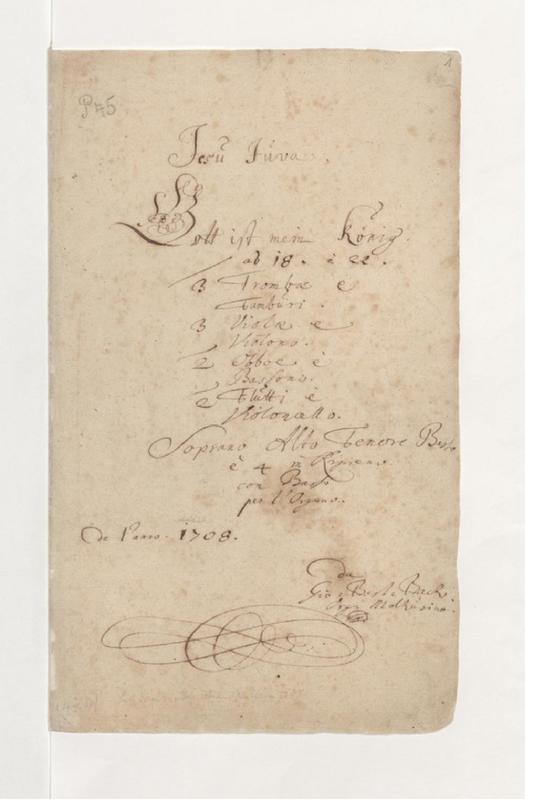 1
P 45
Jesu Juva.
Gott ist mein König.
ab 18. è 22.
3 Trombæ è
Tamburi.
3 Violæ è
Violono.
2 Oboe è
Bassono.
2 Flutti è
Violoncello.
Soprano Alto Tenore Basso
è 4 in Ripieno
con Basso
per l'Organo.
De l'anno. 1708.
da
Gio: Bast: Bach
Org: Molhusino.